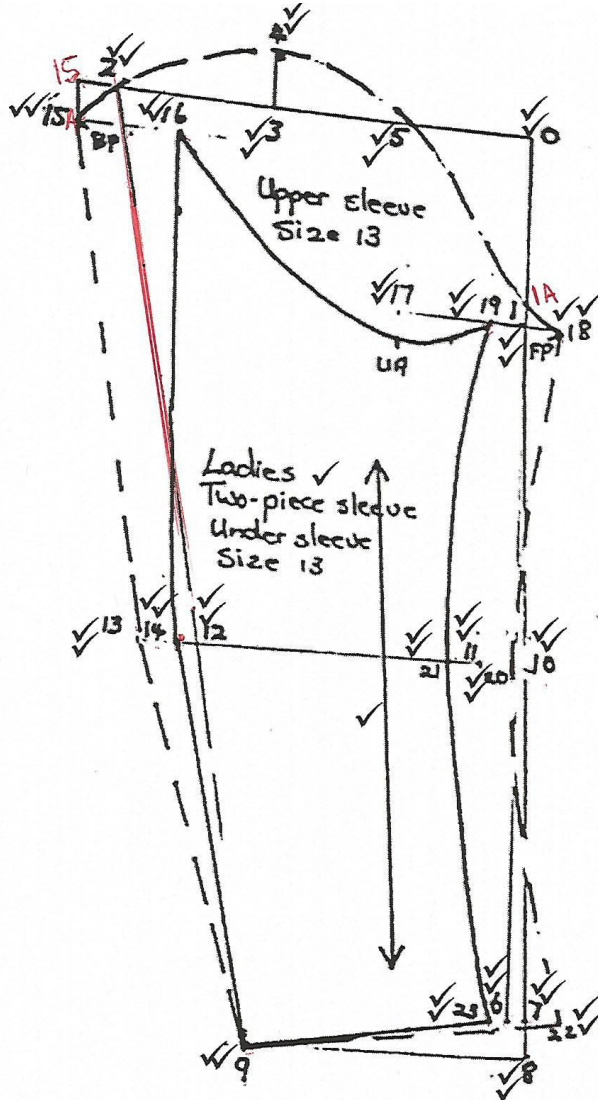 4
15 2
15A 16 3 5 0
BP
Upper sleeve
Size 13
1A
17 19 1 18
UA FP
Ladies
Two-piece sleeve
Under sleeve
Size 13
13 14 12 11 10
21 20
23 6 7 22
9 8